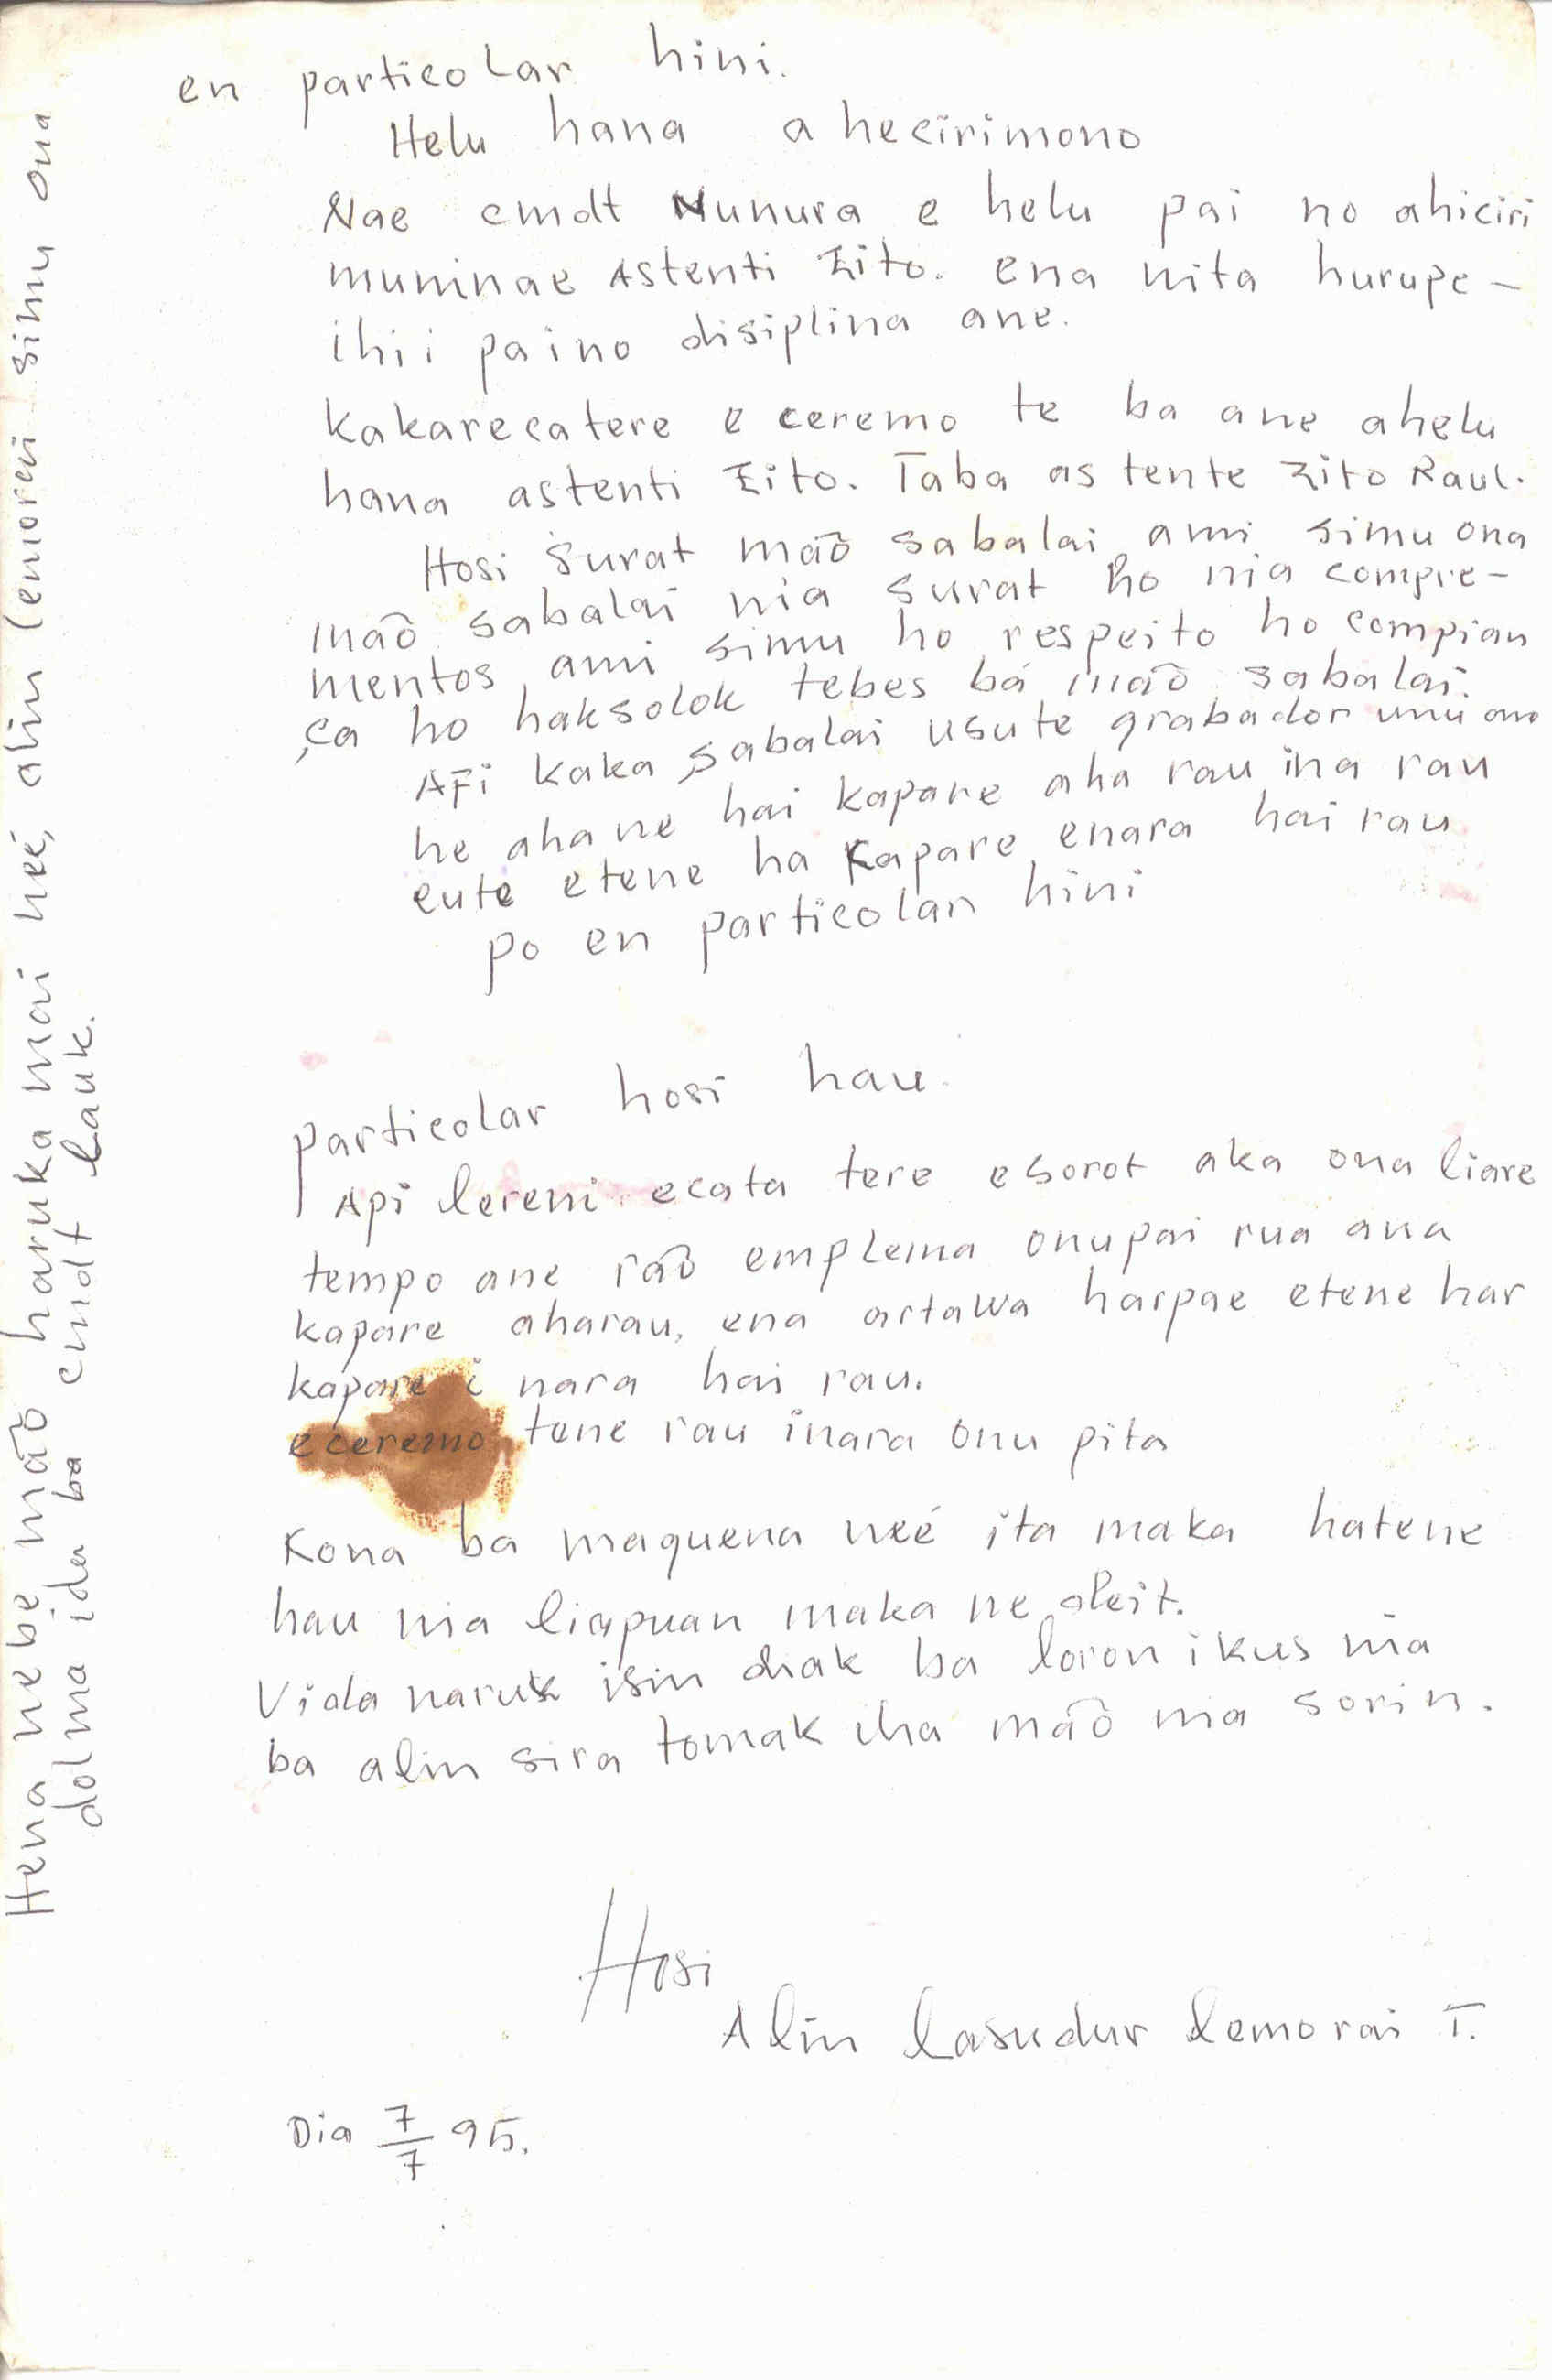 en particolar hini.
Helu hana ahecirimono
Nae cmdt Nunura e helu pai no ahiciri
muninae Astenti Zito. ena nita hurupe-
ihii paino disiplina ane.
kakarecatere e ceremo te ba ane ahelu
hana astenti Zito. Taba as tente Zito Raul.
Hosi surat mãõ sabalai ami simu ona
mãõ sabalai nia surat ho nia compre-
mentos ami simu ho respeito ho compian
ça ho haksolok tebes bá mãõ sabalai.
Afi kaka sabalai usute grabador unu
he ahane hai kapare aha rau ina rau
eute etene ha kapare enara hai rau
po en particolar hini
particolar hosi hau.
Api lereni ecata tere esorot aka ona liare
tempo ane rãõ emplema onupai rua ana
kapare aharau, ena artawa harpae etene har
kapare i nara hai rau.
eceremo tene rau inara onu pita
Kona ba maquena neé ita maka hatene
hau nia liapuan maka ne deit.
Vida naruk isin diak ba loron ikus nia
ba alin sira tomak iha mãõ nia sorin.
Hosi
Alin lasudur lemorai T.
Dia 7/7 95.
Hena nebe mãõ haruka mai neé, alin lemorai simu ona
dolma ida ba cmdt lauk.